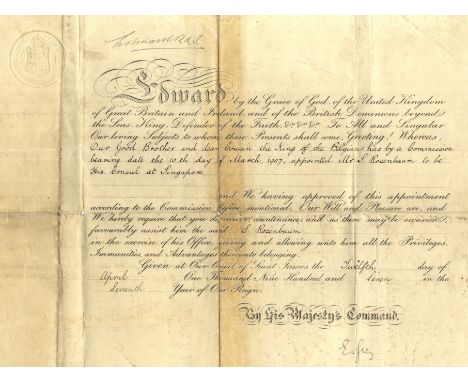 Edward R & I
Edward by the Grace of God, of the United Kingdom
of Great Britain and Ireland, and of the British Dominions beyond
the Seas, King, Defender of the Faith, &c &c &c. To All and Singular
Our loving Subjects to whom these Presents shall come, Greeting! Whereas,
Our Good Brother and dear Cousin the King of the Belgians has by a Commission
bearing date the 10th day of March, 1907, appointed Mr S. Rosenbaum to be
His Consul at Singapore
and We having approved of this appointment
according to the Commission before mentioned, Our Will and Pleasure are, and
We hereby require that you do receive, countenance, and as there may be occasion,
favourably assist him the said S. Rosenbaum
in the exercise of his Office, giving and allowing unto him all the Privileges,
Immunities and Advantages thereunto belonging.
Given at Our Court of Saint James the Twelfth day of
April One Thousand Nine Hundred and Seven in the
Seventh Year of Our Reign.
By His Majesty's Command.
E. Grey